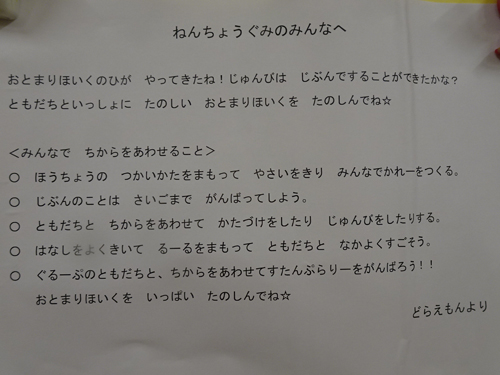 ねんちょうぐみのみんなへ
おとまりほいくのひが　やってきたね！じゅんびは　じぶんですることができたかな？
ともだちといっしょに　たのしい　おとまりほいくを　たのしんでね☆
＜みんなで　ちからをあわせること＞
○　ほうちょうの　つかいかたをまもって　やさいをきり　みんなでかれーをつくる。
○　じぶんのことは　さいごまで　がんばってしよう。
○　ともだちと　ちからをあわせて　かたづけをしたり　じゅんびをしたりする。
○　はなしをよくきいて　るーるをまもって　ともだちと　なかよくすごそう。
○　ぐるーぷのともだちと、ちからをあわせてすたんぷらりーをがんばろう！！
おとまりほいくを　いっぱい　たのしんでね☆
どらえもんより